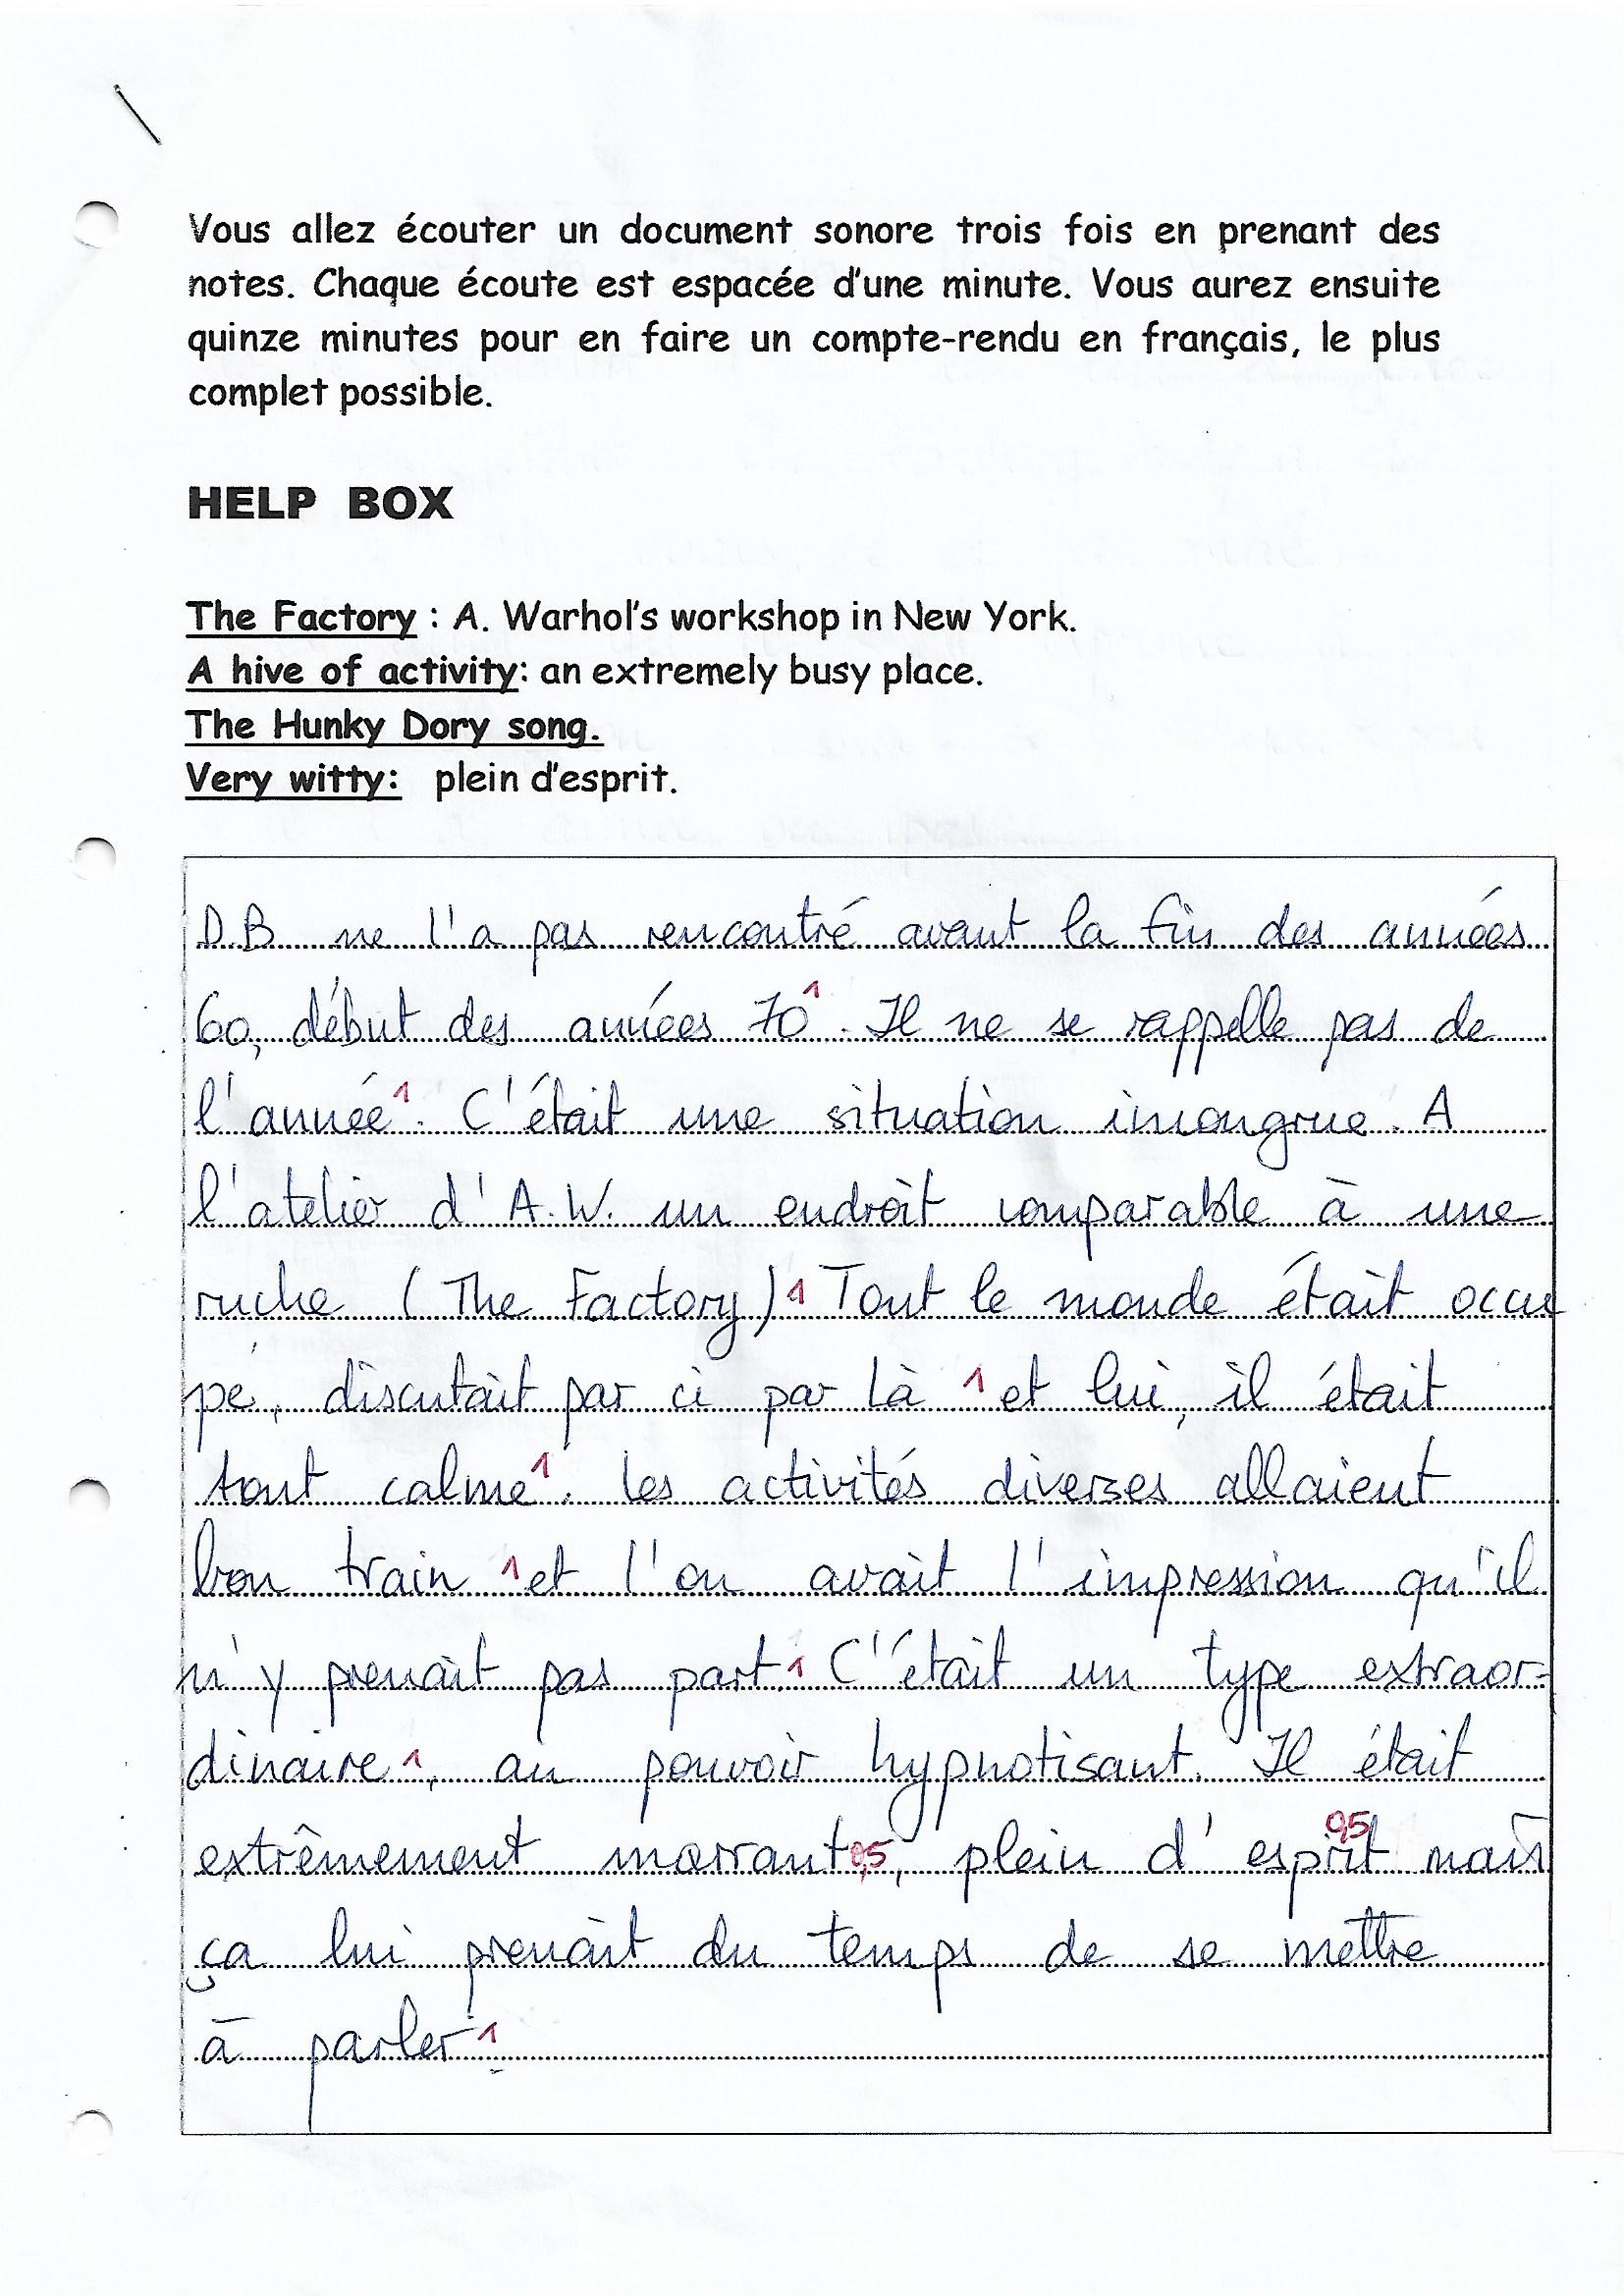 Vous allez écouter un document sonore trois fois en prenant des
notes. Chaque écoute est espacée d'une minute. Vous aurez ensuite
quinze minutes pour en faire un compte-rendu en français, le plus
complet possible.
HELP BOX
The Factory : A. Warhol's workshop in New York.
A hive of activity: an extremely busy place.
The Hunky Dory song.
Very witty: plein d'esprit.
D.B ne l'a pas rencontré avant la fin des années
60, début des années 70 1. Il ne se rappelle pas de
l'année 1. C'était une situation incongrue. A
l'atelier d'A.W. un endroit comparable à une
ruche (The Factory) 1 Tout le monde était occu
pé, discutait par ci par là 1 et lui, il était
tout calme 1. les activités diverses allaient
bon train 1 et l'on avait l'impression qu'il
n'y prenait pas part. 1 C'était un type extraor-
dinaire 1, au pouvoir hypnotisant. Il était
extrêmement marrant 0,5, plein d'esprit 0,5 mais
ça lui prenait du temps de se mettre
à parler 1.